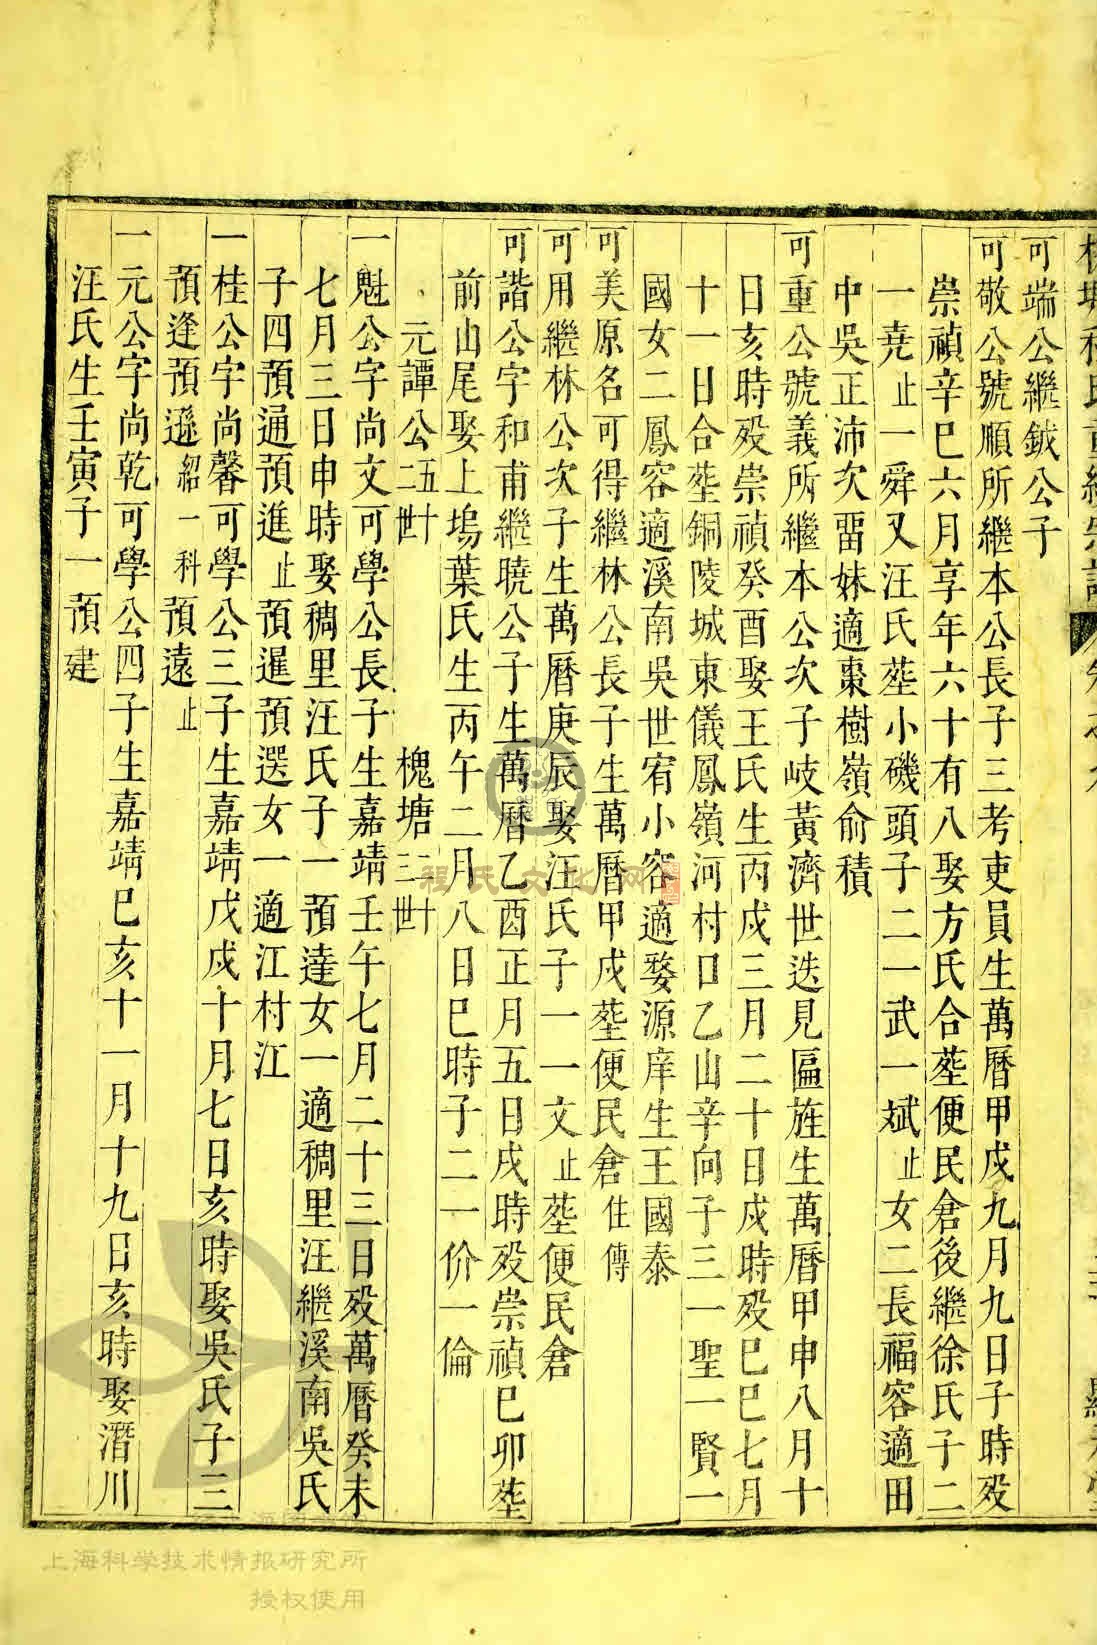 可端公繼鉞公子
可敬公號順所繼本公長子三考吏員生萬曆甲戍九月九日子時歿
崇禎辛巳六月享年六十有八娶方氏合塟便民倉後繼徐氏子二
一堯止一舜又汪氏塟小磯頭子二一武一斌止女二長福容適田
中吳正沛次畱妹適棗樹嶺俞積
可重公號義所繼本公次子岐黃濟世迭見匾旌生萬曆甲申八月十
日亥時歿崇禎癸酉娶王氏生丙戍三月二十日戍時歿巳巳七月
十一日合塟銅陵城東儀鳳嶺河村口乙山辛向子三一聖一賢一
國女二鳳容適溪南吳世宥小容適婺源庠生王國泰
可美原名可得繼林公長子生萬曆甲戍塟便民倉住傳
可用繼林公次子生萬曆庚辰娶汪氏子一一文止塟便民倉
可諧公字和甫繼曉公子生萬曆乙酉正月五日戌時歿崇禎巳卯塟
前山尾娶上塢葉氏生丙午二月八日巳時子二一价一倫
元譚公五十二世 槐塘二十三世
一魁公字尚文可學公長子生嘉靖壬午七月二十三日歿萬曆癸未
七月三日申時娶稠里汪氏子一預達女一適稠里汪繼溪南吳氏
子四預通預進止預暹預選女一適江村江
一桂公字尚馨可學公三子生嘉靖戊戍十月七日亥時娶吳氏子三
預逢預遜紹一科預遠止
一元公字尚乾可學公四子生嘉靖巳亥十一月十九日亥時娶潛川
汪氏生壬寅子一預建
程氏文化网
上海科学技术情报研究所
授权使用